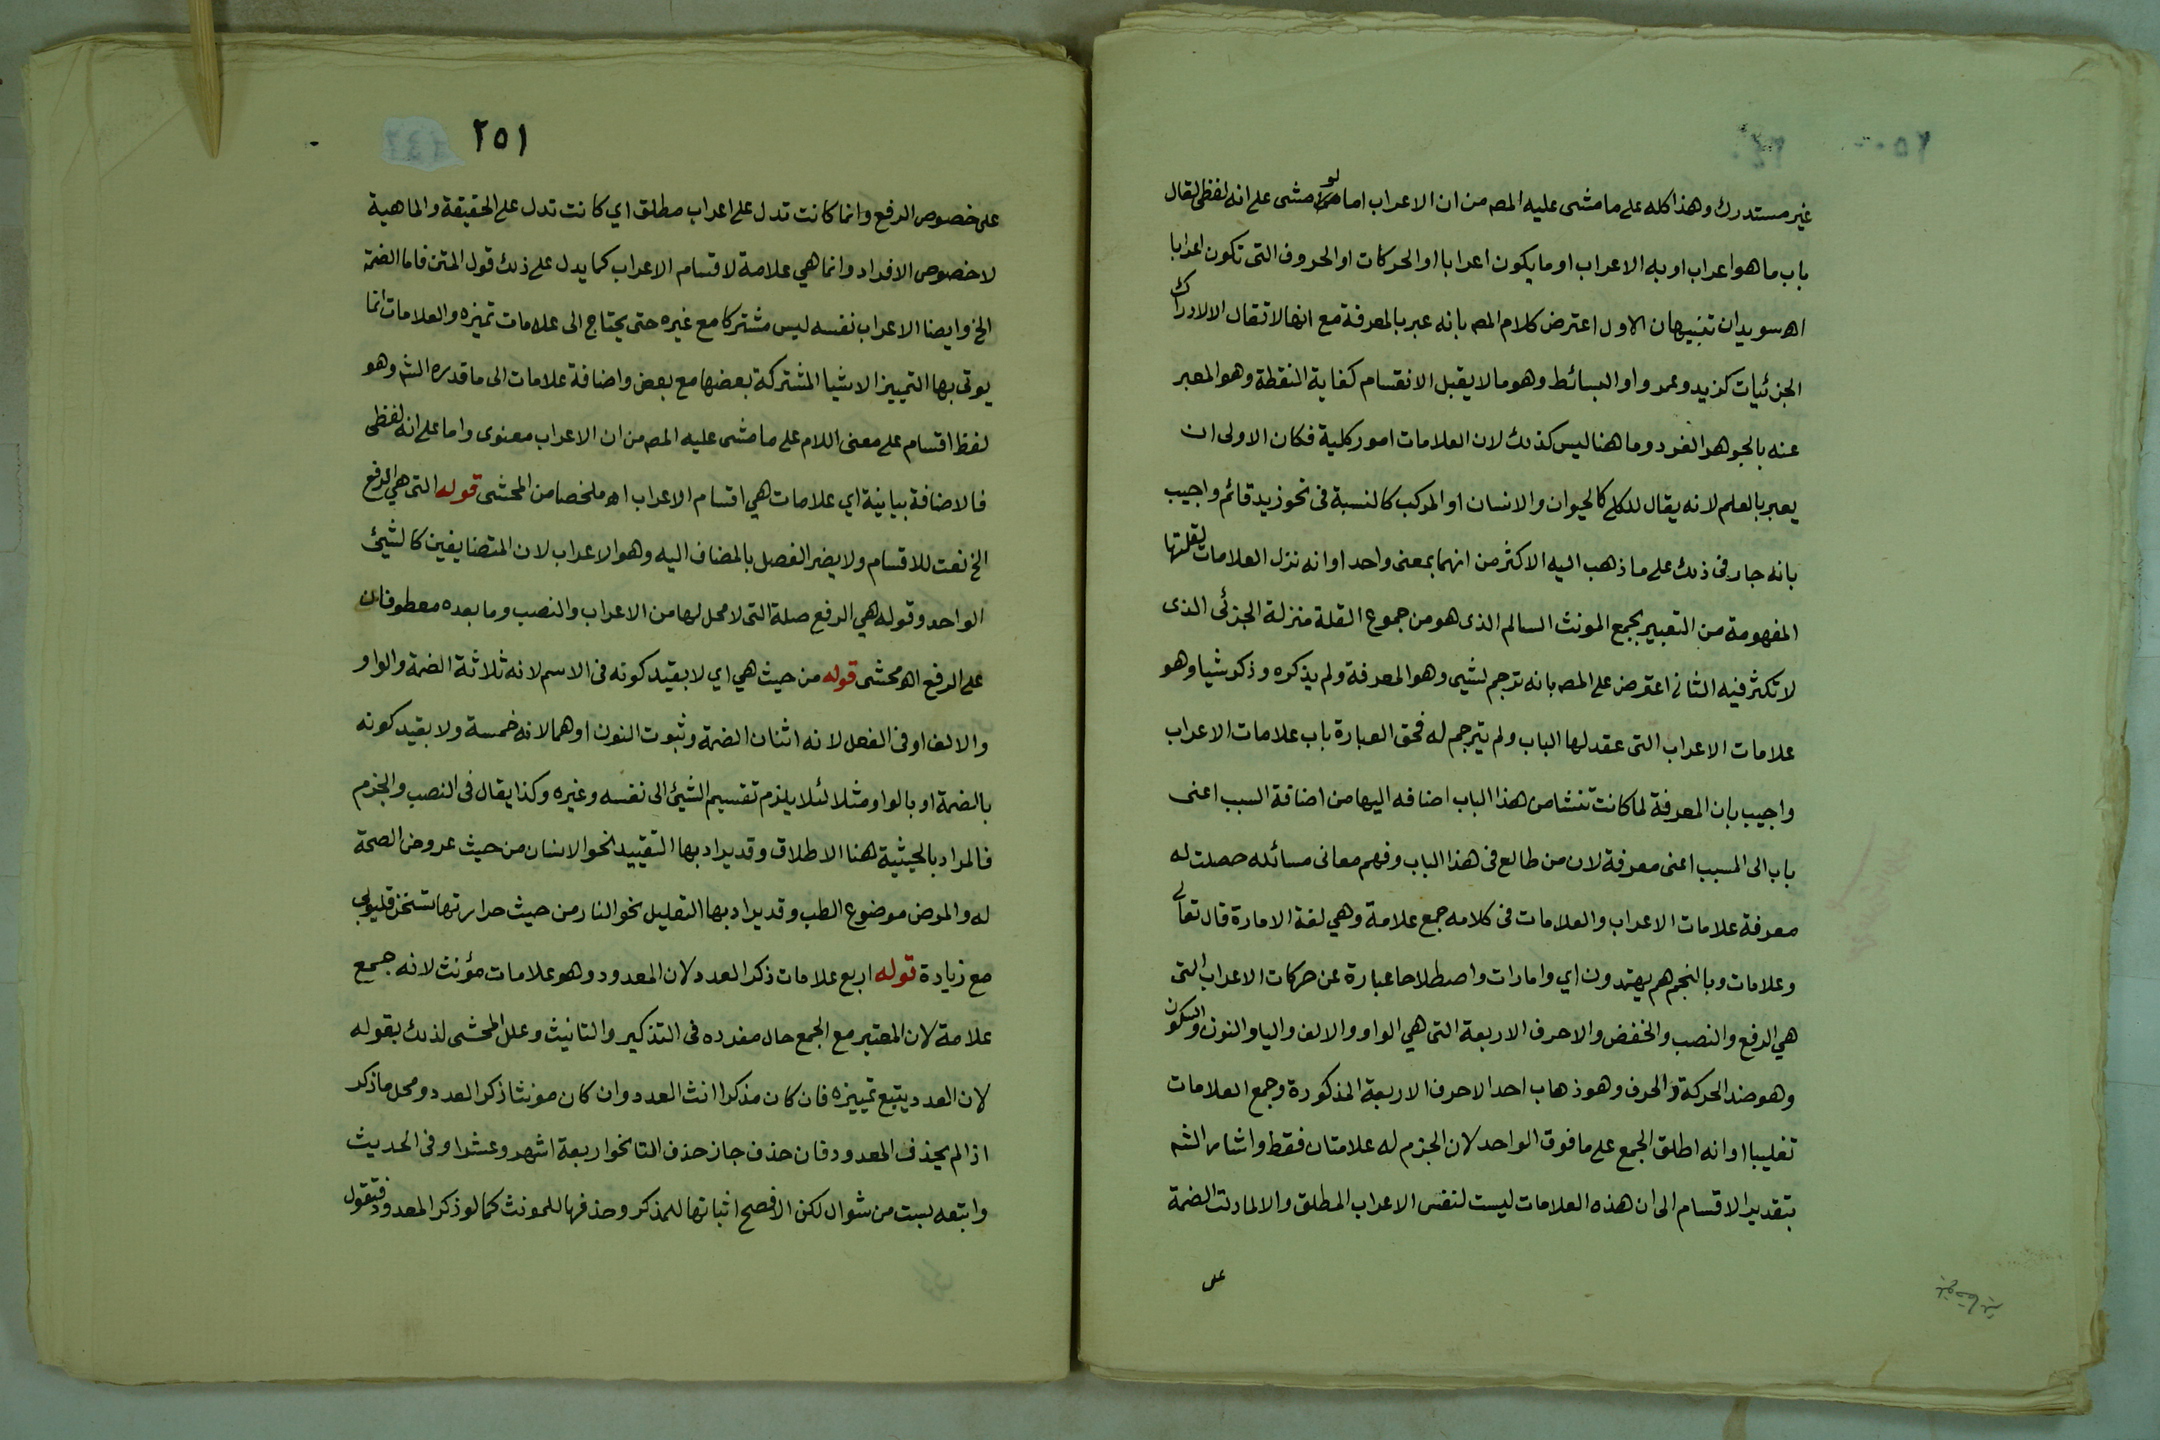 غير مستدرك وهذا كله على ما مشى عليه المصـ من ان الاعراب اما لو مشى على انه لفظى لقال
باب ما هو اعراب او به الاعراب او ما يكون اعرابا او الحركات او الحروف التى تكون اعرابا
اهـ سويدان تنبيهان الاول اعترض كلام المصـ بانه عبر بالمعرفة مع انها لا تقال الا لادراك
الجزئيات كزيد وعمرو او البسائط وهو ما لا يقبل الانقسام كغاية النقطة وهو المعبر
عنه بالجوهر الفرد وما هنا ليس كذلك لان العلامات امور كلية فكان الاولى ان
يعبر بالعلم لانه يقال للكلى كالحيوان والانسان او المركب كالنسبة فى نحو زيد قائم واجيب
بانه جار فى ذلك على ما ذهب اليه الاكثر من انهما بمعنى واحد او انه نزل العلامات لقلتها
المفهومة من التعبير بجمع المونث السالم الذى هو من جموع القلة منزلة الجزئى الذى
لا تكثر فيه الثانى اعترض على المصـ بانه ترجم لشيى وهو المعرفة ولم يذكره وذكر شيا وهو
علامات الاعراب التى عقد لها الباب ولم يترجم له فحق العبارة باب علامات الاعراب
واجيب بان المعرفة لما كانت تنشا من هذا الباب اضافه اليها من اضافة السبب اعنى
باب الى المسبب اعنى معرفة لان من طالع فى هذا الباب وفهم معانى مسائله حصلت له
معرفة علامات الاعراب والعلامات فى كلامه جمع علامة وهي لغة الامارة قال تعالى
وعلامات وبالنجم هم يهتدون اي وامارات واصطلاحا عبارة عن حركات الاعراب التى
هي الرفع والنصب والخفض والاحرف الاربعة التى هي الواو والالف واليا والنون والسكون
وهو ضد الحركة والحرف وهو ذهاب احد الاحرف الاربعة المذكورة وجمع العلامات
تغليبا او انه اطلق الجمع على ما فوق الواحد لان الجزم له علامتان فقط واشار الشـ
بتقدير الاقسام الى ان هذه العلامات ليست لنفس الاعراب المطلق والا لما دلت الضمة
على
٢٥١
على خصوص الرفع وانما كانت تدل على اعراب مطلق اي كانت تدل على الحقيقة والماهية
لا خصوص الافراد وانما هي علامة لاقسام الاعراب كما يدل على ذلك قول المتن فاما الضمة
الخ وايضا الاعراب نفسه ليس مشتركا مع غيره حتى يحتاج الى علامات تميزه والعلامات انما
يوتى بها التمييز الاشيا المشتركة بعضها مع بعض واضافة علامات الى ما قدره الشـ وهو
لفظ اقسام على معنى اللام على ما مشى عليه المصـ من ان الاعراب معنوى واما على انه لفظى
فالاضافة بيانية اي علامات هي اقسام الاعراب اهـ ملخصا من المحشى قوله التى هي الرفع
الخ نعت للاقسام ولا يضر الفصل بالمضاف اليه وهو الاعراب لان المتضايفين كالشيئ
الواحد وقوله هي الرفع صلة التى لا محل لها من الاعراب والنصب وما بعده معطوفان
على الرفع اهـ محشى قوله من حيث هي اي لا بقيد كونه فى الاسم لانه ثلاثة الضمة والواو
والالف او فى الفعل لانه اثنان الضمة وثبوت النون او هما لانه خمسة ولا بقيد كونه
بالضمة او بالواو مثلا لئلا يلزم تقسيم الشيئ الى نفسه وغيره وكذا يقال فى النصب والجزم
فالمراد بالحيثية هنا الاطلاق وقد يراد بها التقييد نحو الانسان من حيث عروض الصحة
له والمرض موضوع الطب وقد يراد بها التعليل نحو النار من حيث حرارتها تسخن قليوبى
مع زيادة قوله اربع علامات ذكر العدد لان المعدود وهو علامات مؤنث لانه جمع
علامة لان المعتبر مع الجمع حال مفرده فى التذكير والتانيث وعلل المحشى لذلك بقوله
لان العدد يتبع تمييزه فان كان مذكرا انث العدد وان كان مونثا ذكر العدد ومحل ما ذكر
اذا لم يحذف المعدود فان حذف جاز حذف التا نحو اربعة اشهر وعشرا وفى الحديث
وابتعه بست من شوال لكن الافصح اثباتها للمذكر وحذفها للمونث كما لو ذكر المعدود فتقول